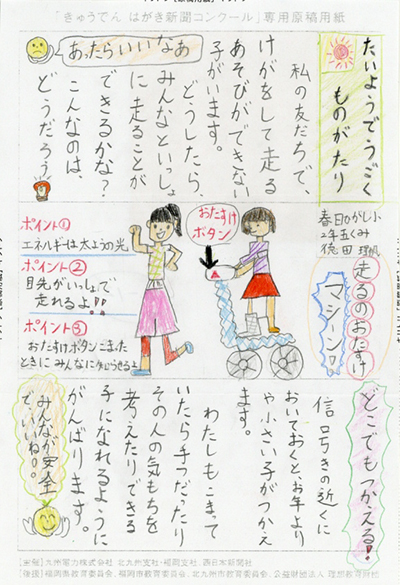 「きゅうでん はがき新聞コンクール」専用原稿用紙
たいようでうごく
ものがたり
あったらいいなあ
私の友だちで、
けがをして走る
あそびができない
子がいます。
どうしたら、
みんなといっしょ
に走ることが
できるかな?
こんなのは、
どうだろう
春日ひがし小
2年五くみ
徳田 理帆
走るのおたすけ
マシーン!
おたすけ
ボタン
ポイント①
エネルギーは太ようの光。
ポイント②
目先がいっしょで
走れるよ!!
ポイント③
おたすけボタンこまった
ときに みんなに知らせるよ
どこでもつかえる!
信ごうきの近くに
おいておくと、お年より
や小さい子がつかえ
ます。
わたしもこまって
いたら手つだったり
その人の気もちを
考えたりできる
子になれるように
がんばります。
みんなが安全
でいいね。
[主催]九州電力株式会社 北九州支社・福岡支社、西日本新聞社
[後援]福岡県教育委員会、福岡市教育委員会、北九州市教育委員会、公益財団法人 理想教育財団